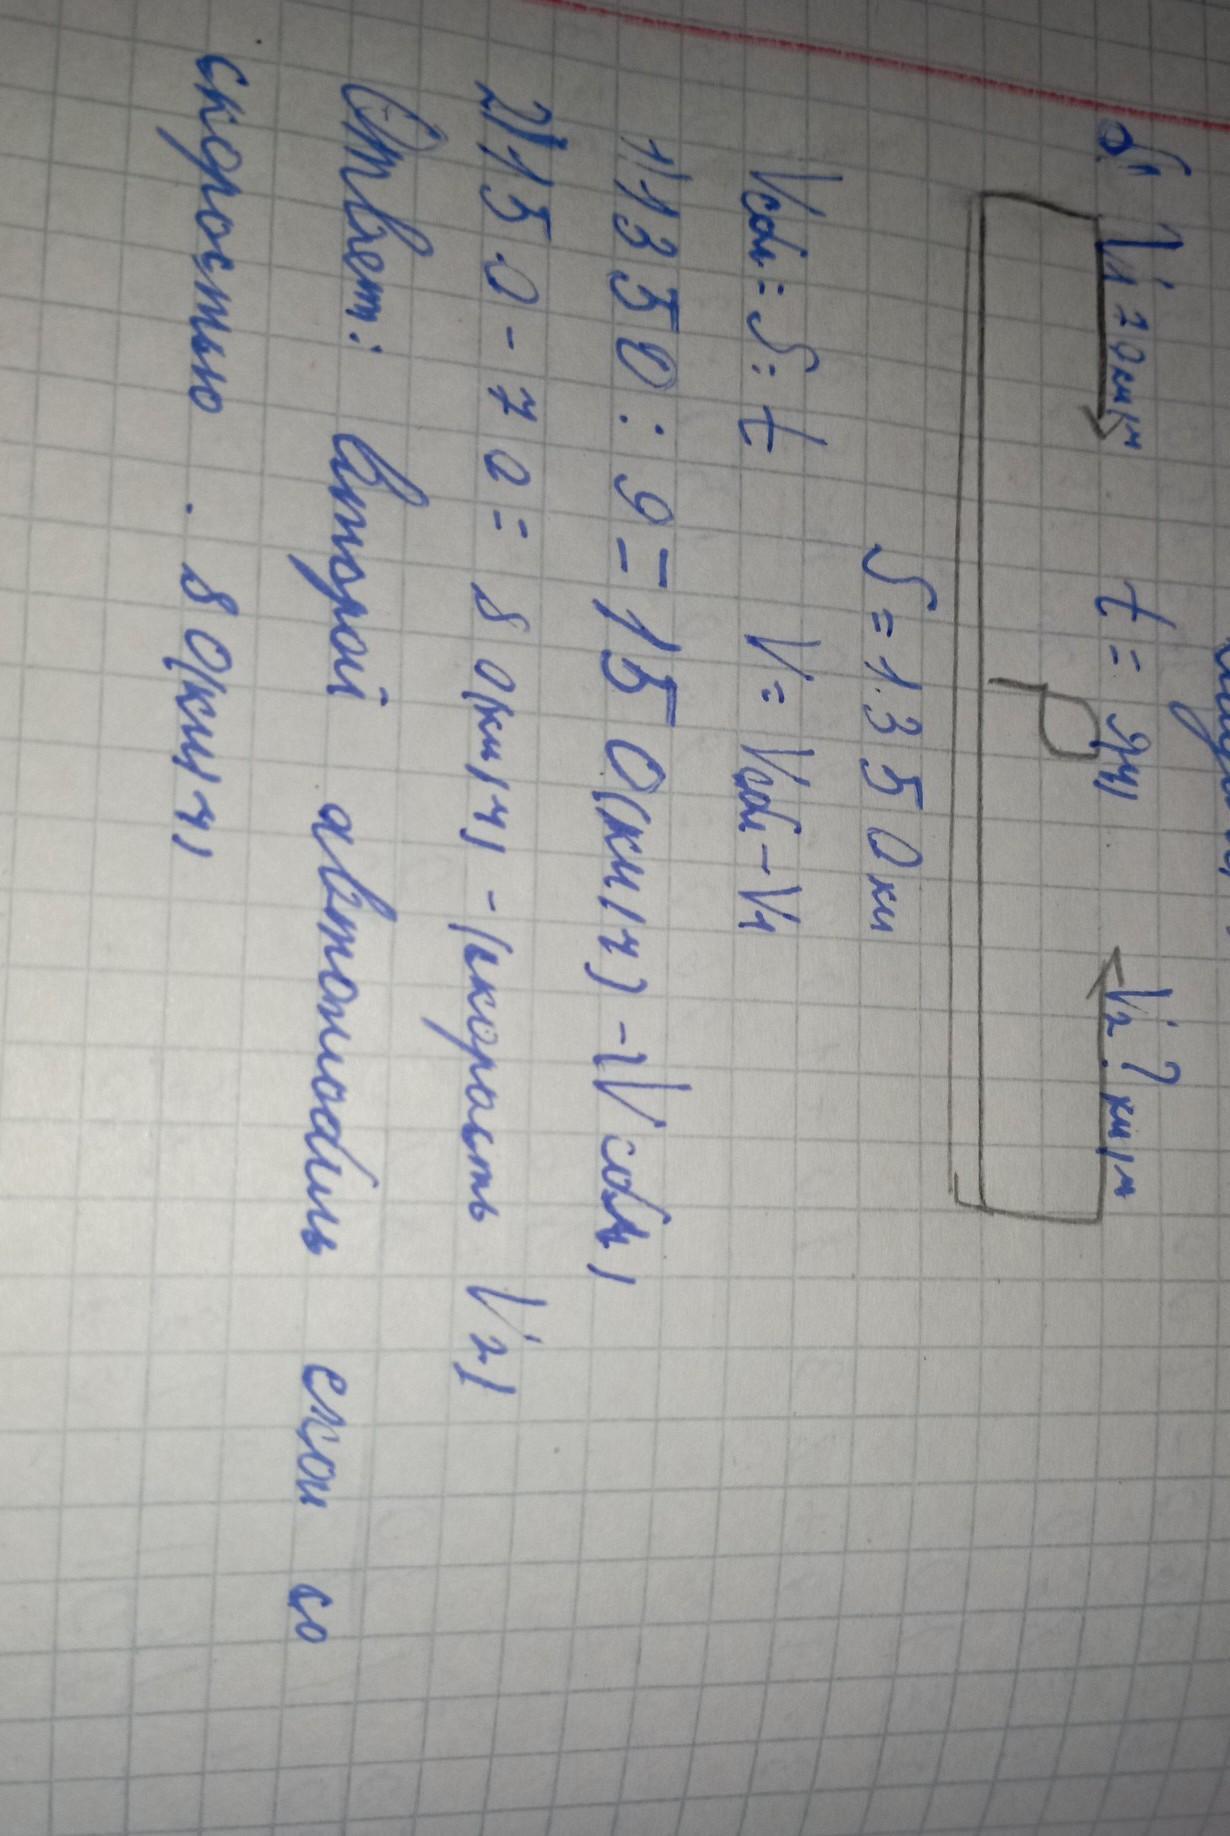 б. V1 70км/ч t= 9(ч) V2 ? км/ч
S=1350 км
Vсбл=S:t V=Vсбл-V1
1)1350:9=150(км/ч)-(Vсбл)
2)150-70=80(км/ч)-(скорость V2)
Ответ: второй автомобиль ехал со
скоростью 80(км/ч)